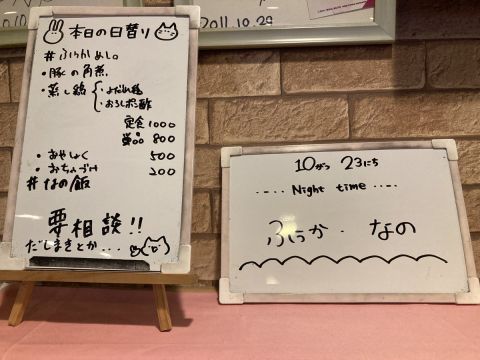 本日の日替り
#ふうかめし。
・豚の角煮
・蒸し鶏
・よだれ鶏
・おろしポン酢
定食 1000
単品 800
・おやしょく 500
・おちょづけ 200
#なの飯
要相談!!
だしまきとか...
2011.10.29
10がつ 23にち
Night time
ふうか・なの